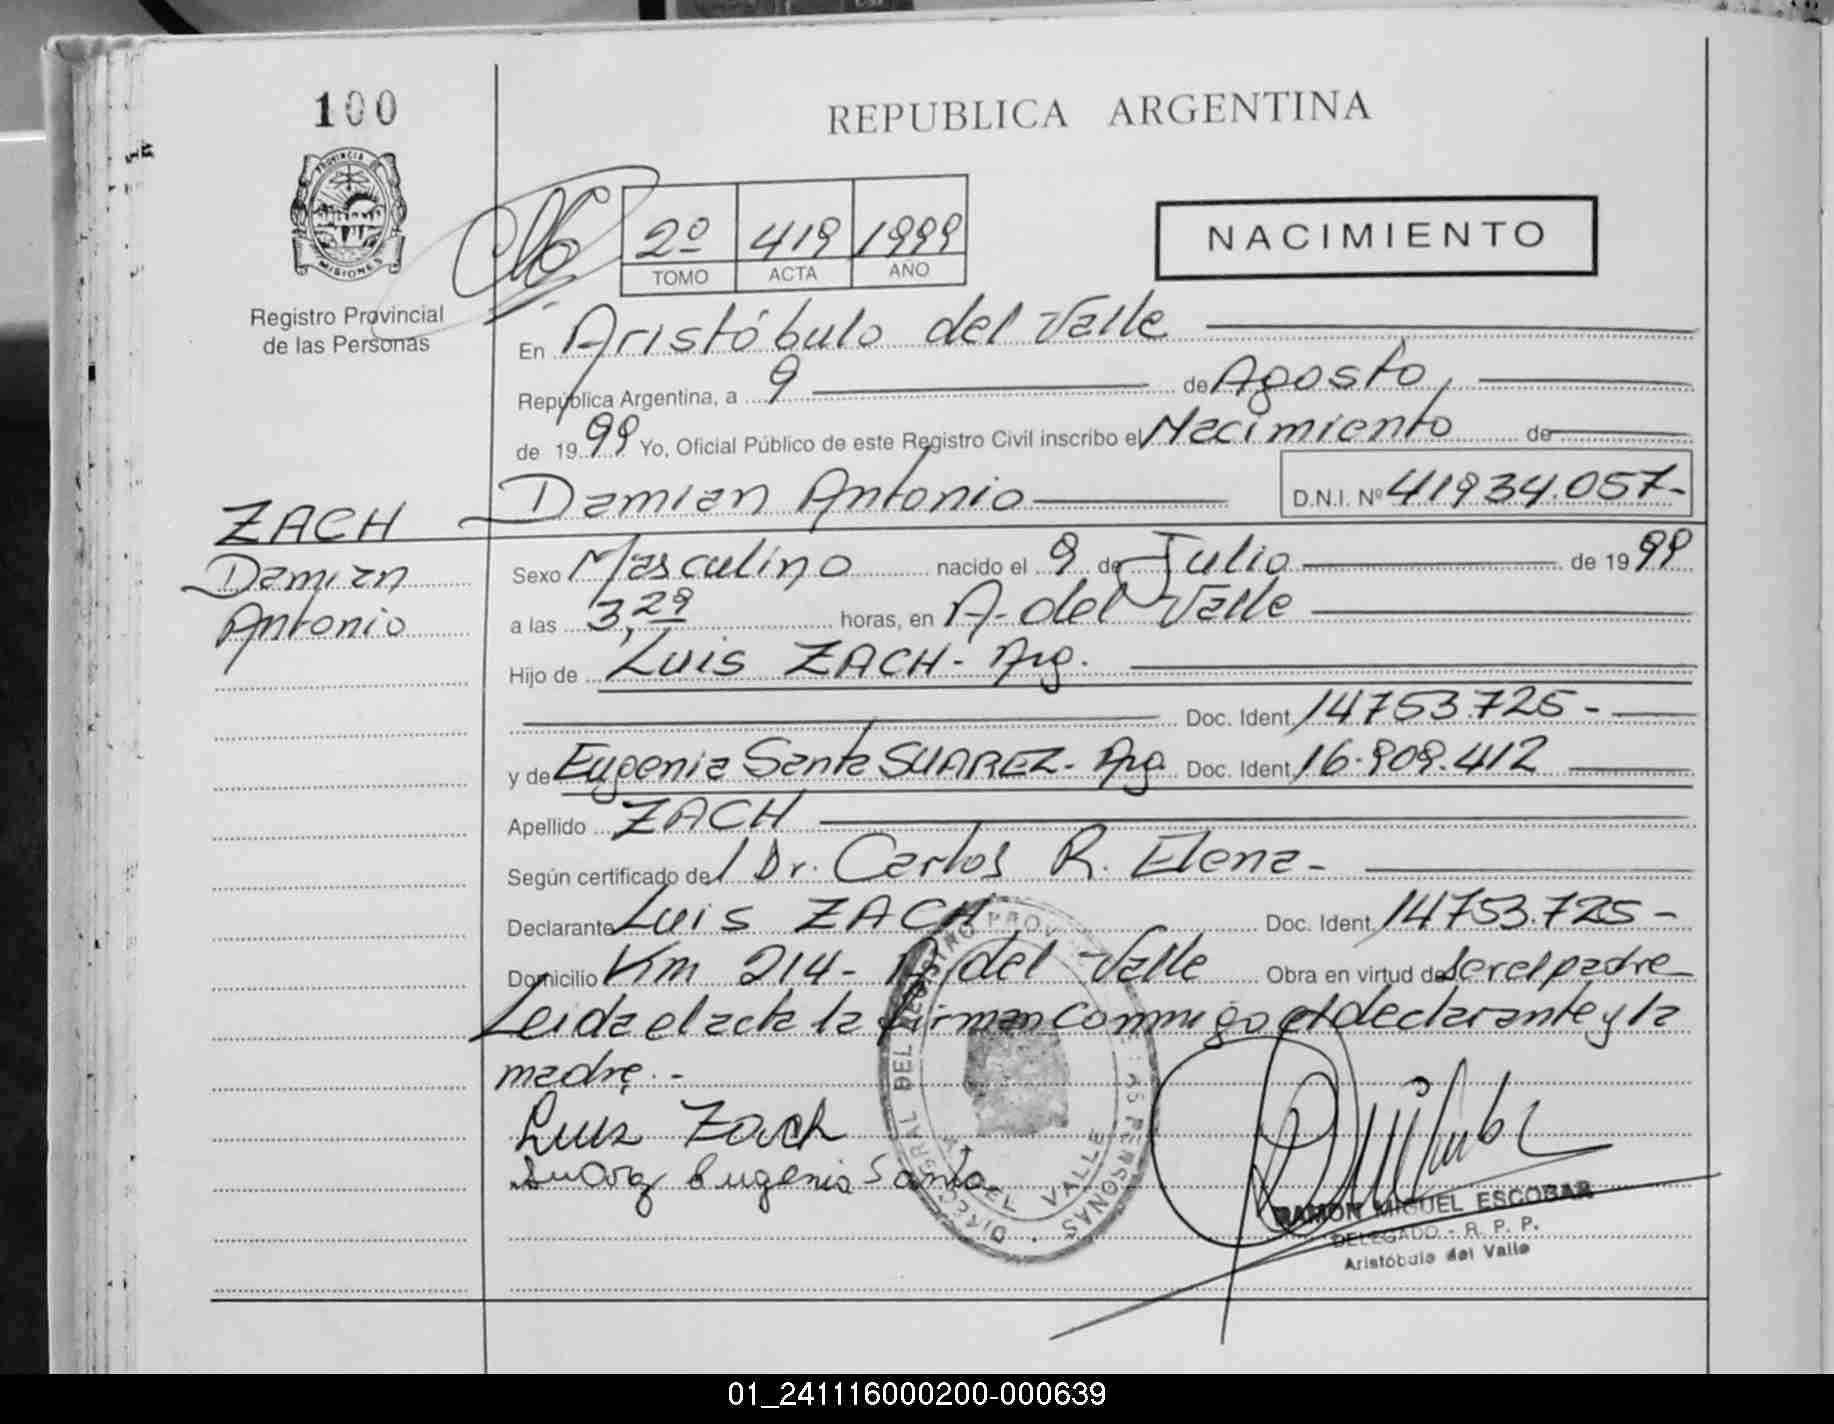 100
REPUBLICA ARGENTINA
PROVINCIA DE
MISIONES
Registro Provincial
de las Personas
2º 419 1999
TOMO ACTA AÑO
NACIMIENTO
En Aristóbulo del Valle
República Argentina, a 9 de Agosto,
de 1999 Yo, Oficial Público de este Registro Civil inscribo el Nacimiento de
Damian Antonio D.N.I. Nº 41934.057-
ZACH
Damian
Antonio
Sexo Masculino nacido el 9 de Julio de 1999
a las 3,29 horas, en A. del Valle
Hijo de Luis ZACH- Arg.
Doc. Ident. 14753.725-
y de Eugenia Santa SUAREZ- Arg. Doc. Ident. 16.909.412
Apellido ZACH
Según certificado del Dr. Carlos R. Elena-
Declarante Luis ZACH Doc. Ident. 14753.725-
Domicilio Km 214- A. del Valle Obra en virtud de ser el padre
Leida el acta la firman conmigo el declarante y la
madre.-
Luis Zach
Suarez Eugenia Santa
RAMON MIGUEL ESCOBAR
DELEGADO - R. P. P.
Aristóbulo del Valle
01_241116000200-000639